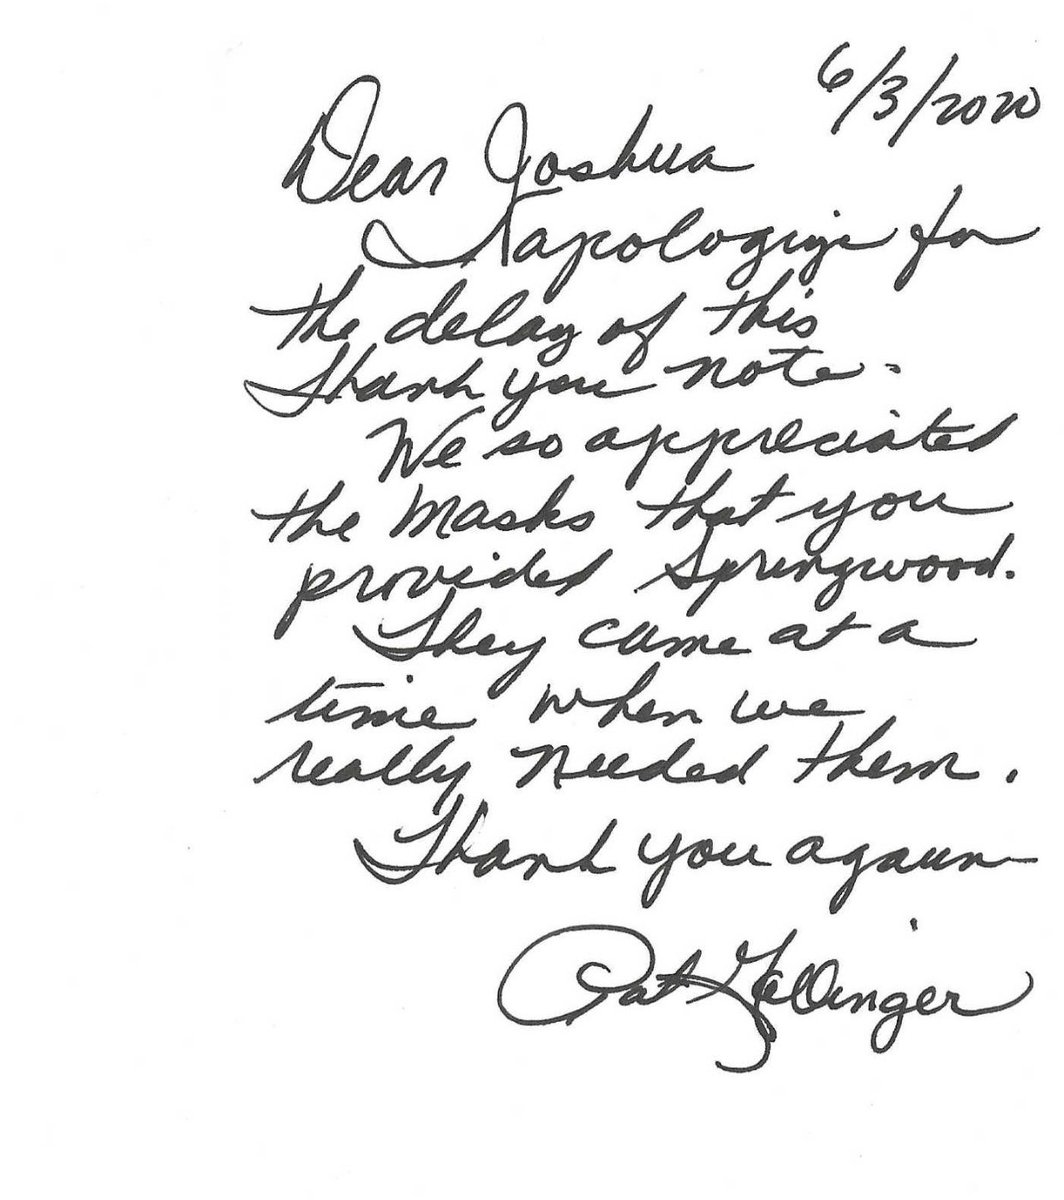 6/3/2020
Dear Joshua
I apologize for
the delay of this
Thank you note.
We so appreciated
the Masks that you
provided Springwood.
They came at a
time when we
really needed them.
Thank you again
Pat